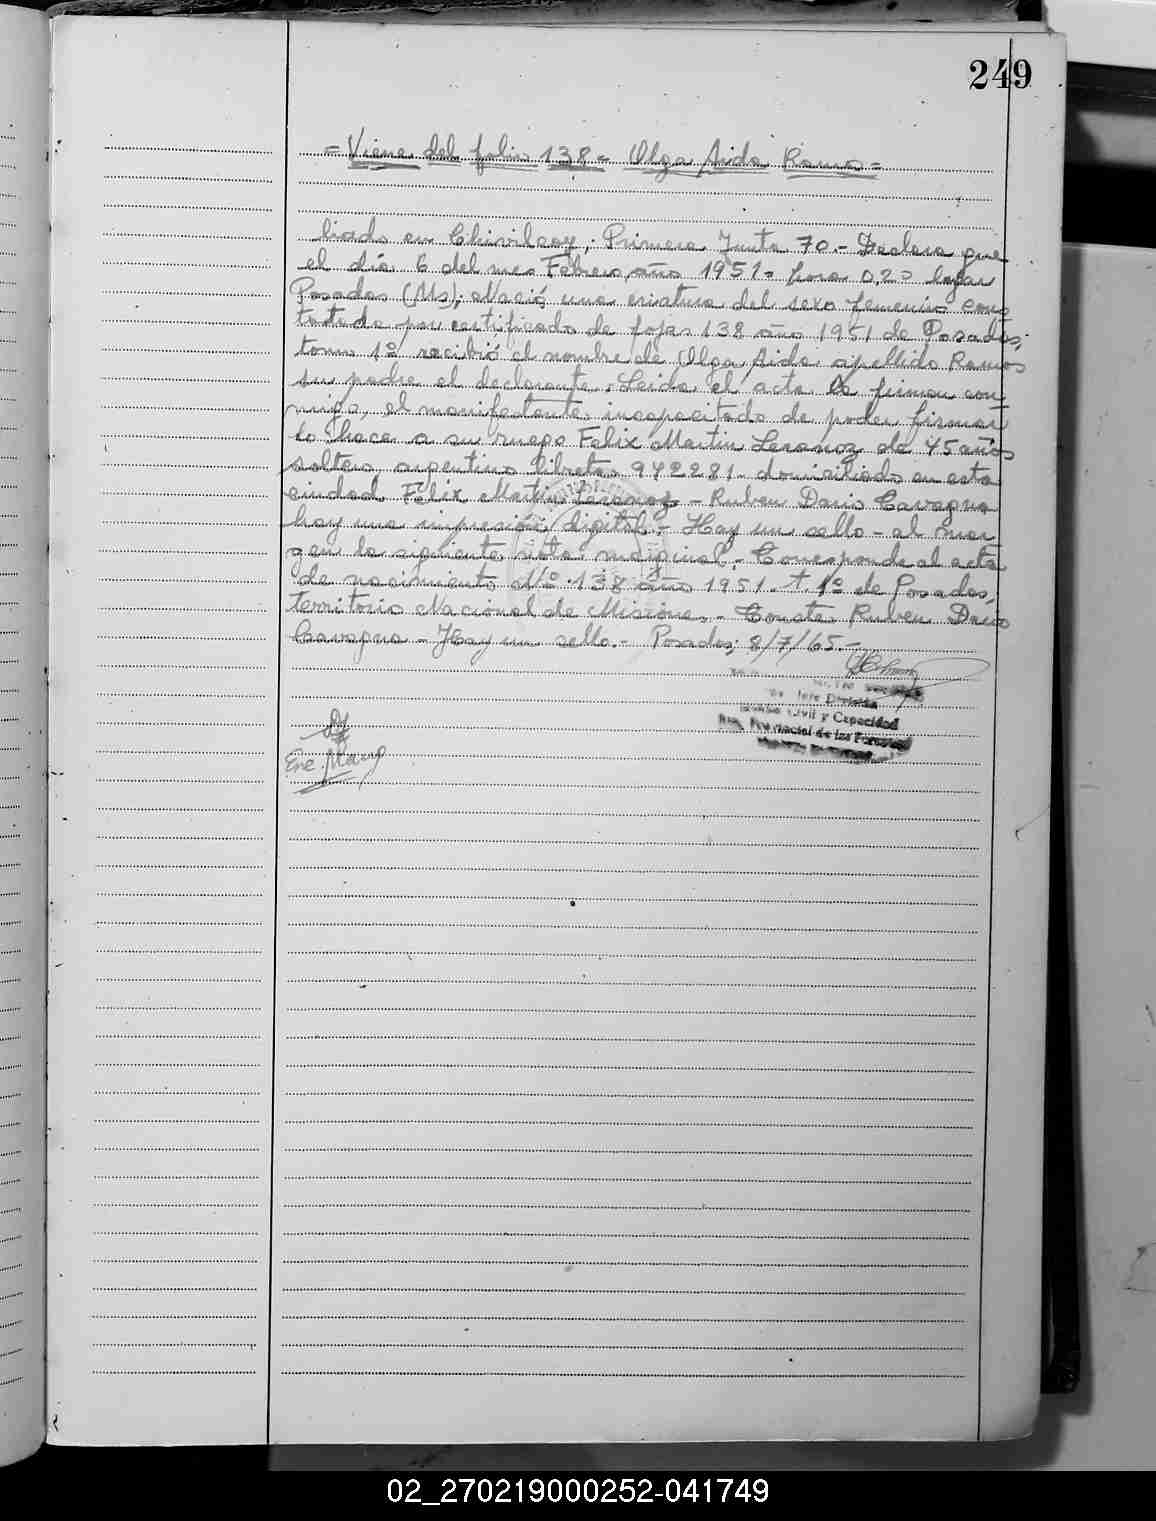 249
= Viene del folio 138 - Olga Aida Ramos =
liado en Chivilcoy, Primera Junta 70.- Declara que
el día 6 del mes Febrero, año 1951 - hora 0,20 lugar
Posadas (Ms); Nació una criatura del sexo femenino cons
tatado por certificado de fojas 138 año 1951 de Posadas,
tomo 1º recibió el nombre de Olga Aida apellido Ramos
su padre el declarante. Leida el acta la firman con
migo, el manifestante incapacitado de poder firmar
lo hace a su ruego Felix Martin Leranoz de 45 años
soltero, argentino libreta 972281 - domiciliado en esta
ciudad Felix Martin Leranoz - Ruben Dario Cavagna
hay una impresión digital.- Hay un sello - al mar
gen la sigiliente nota marginal.- Corresponde al acta
de nacimiento Nº 138 año 1951. t. 1º de Posadas,
territorio Nacional de Misiones.- Conste Ruben Dario
Cavagna - Hay un sello.- Posadas, 8/7/65.-
División
Civil y Capacidad
Provincial de las Personas
02_270219000252-041749